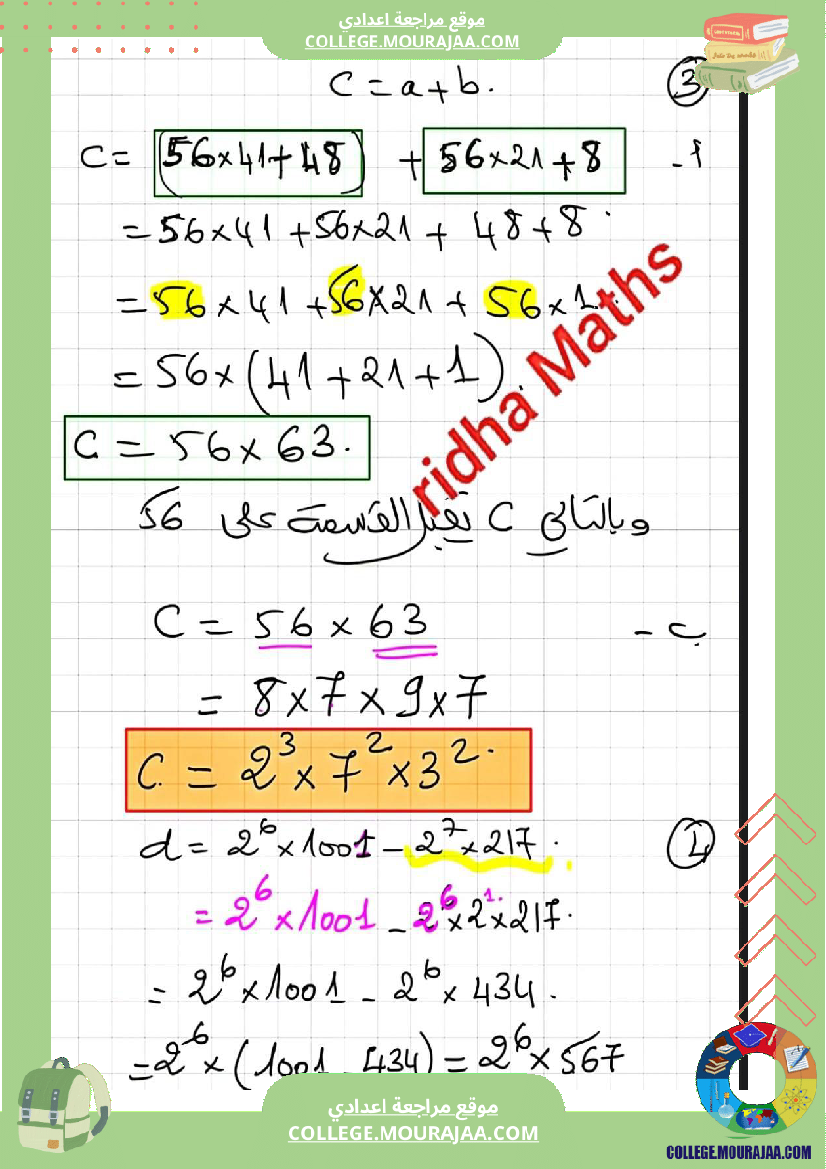 موقع مراجعة اعدادي
COLLEGE.MOURAJAA.COM
C = a + b. ③
C = (56×41+48) + 56×21+8 أ-
= 56×41 + 56×21 + 48+8.
= 56×41 + 56×21 + 56×1.
= 56×(41+21+1).
C = 56×63.
وبالتالي C تقبل القسمة على 56
C = 56 × 63 ب-
= 8×7×9×7
C = 2³×7²×3².
d = 2⁶×1001 − 2⁷×217.
= 2⁶×1001 − 2⁶×2¹×217.
= 2⁶×1001 − 2⁶×434.
= 2⁶×(1001 − 434) = 2⁶×567
ridha Maths
موقع مراجعة اعدادي
COLLEGE.MOURAJAA.COM
COLLEGE.MOURAJAA.COM